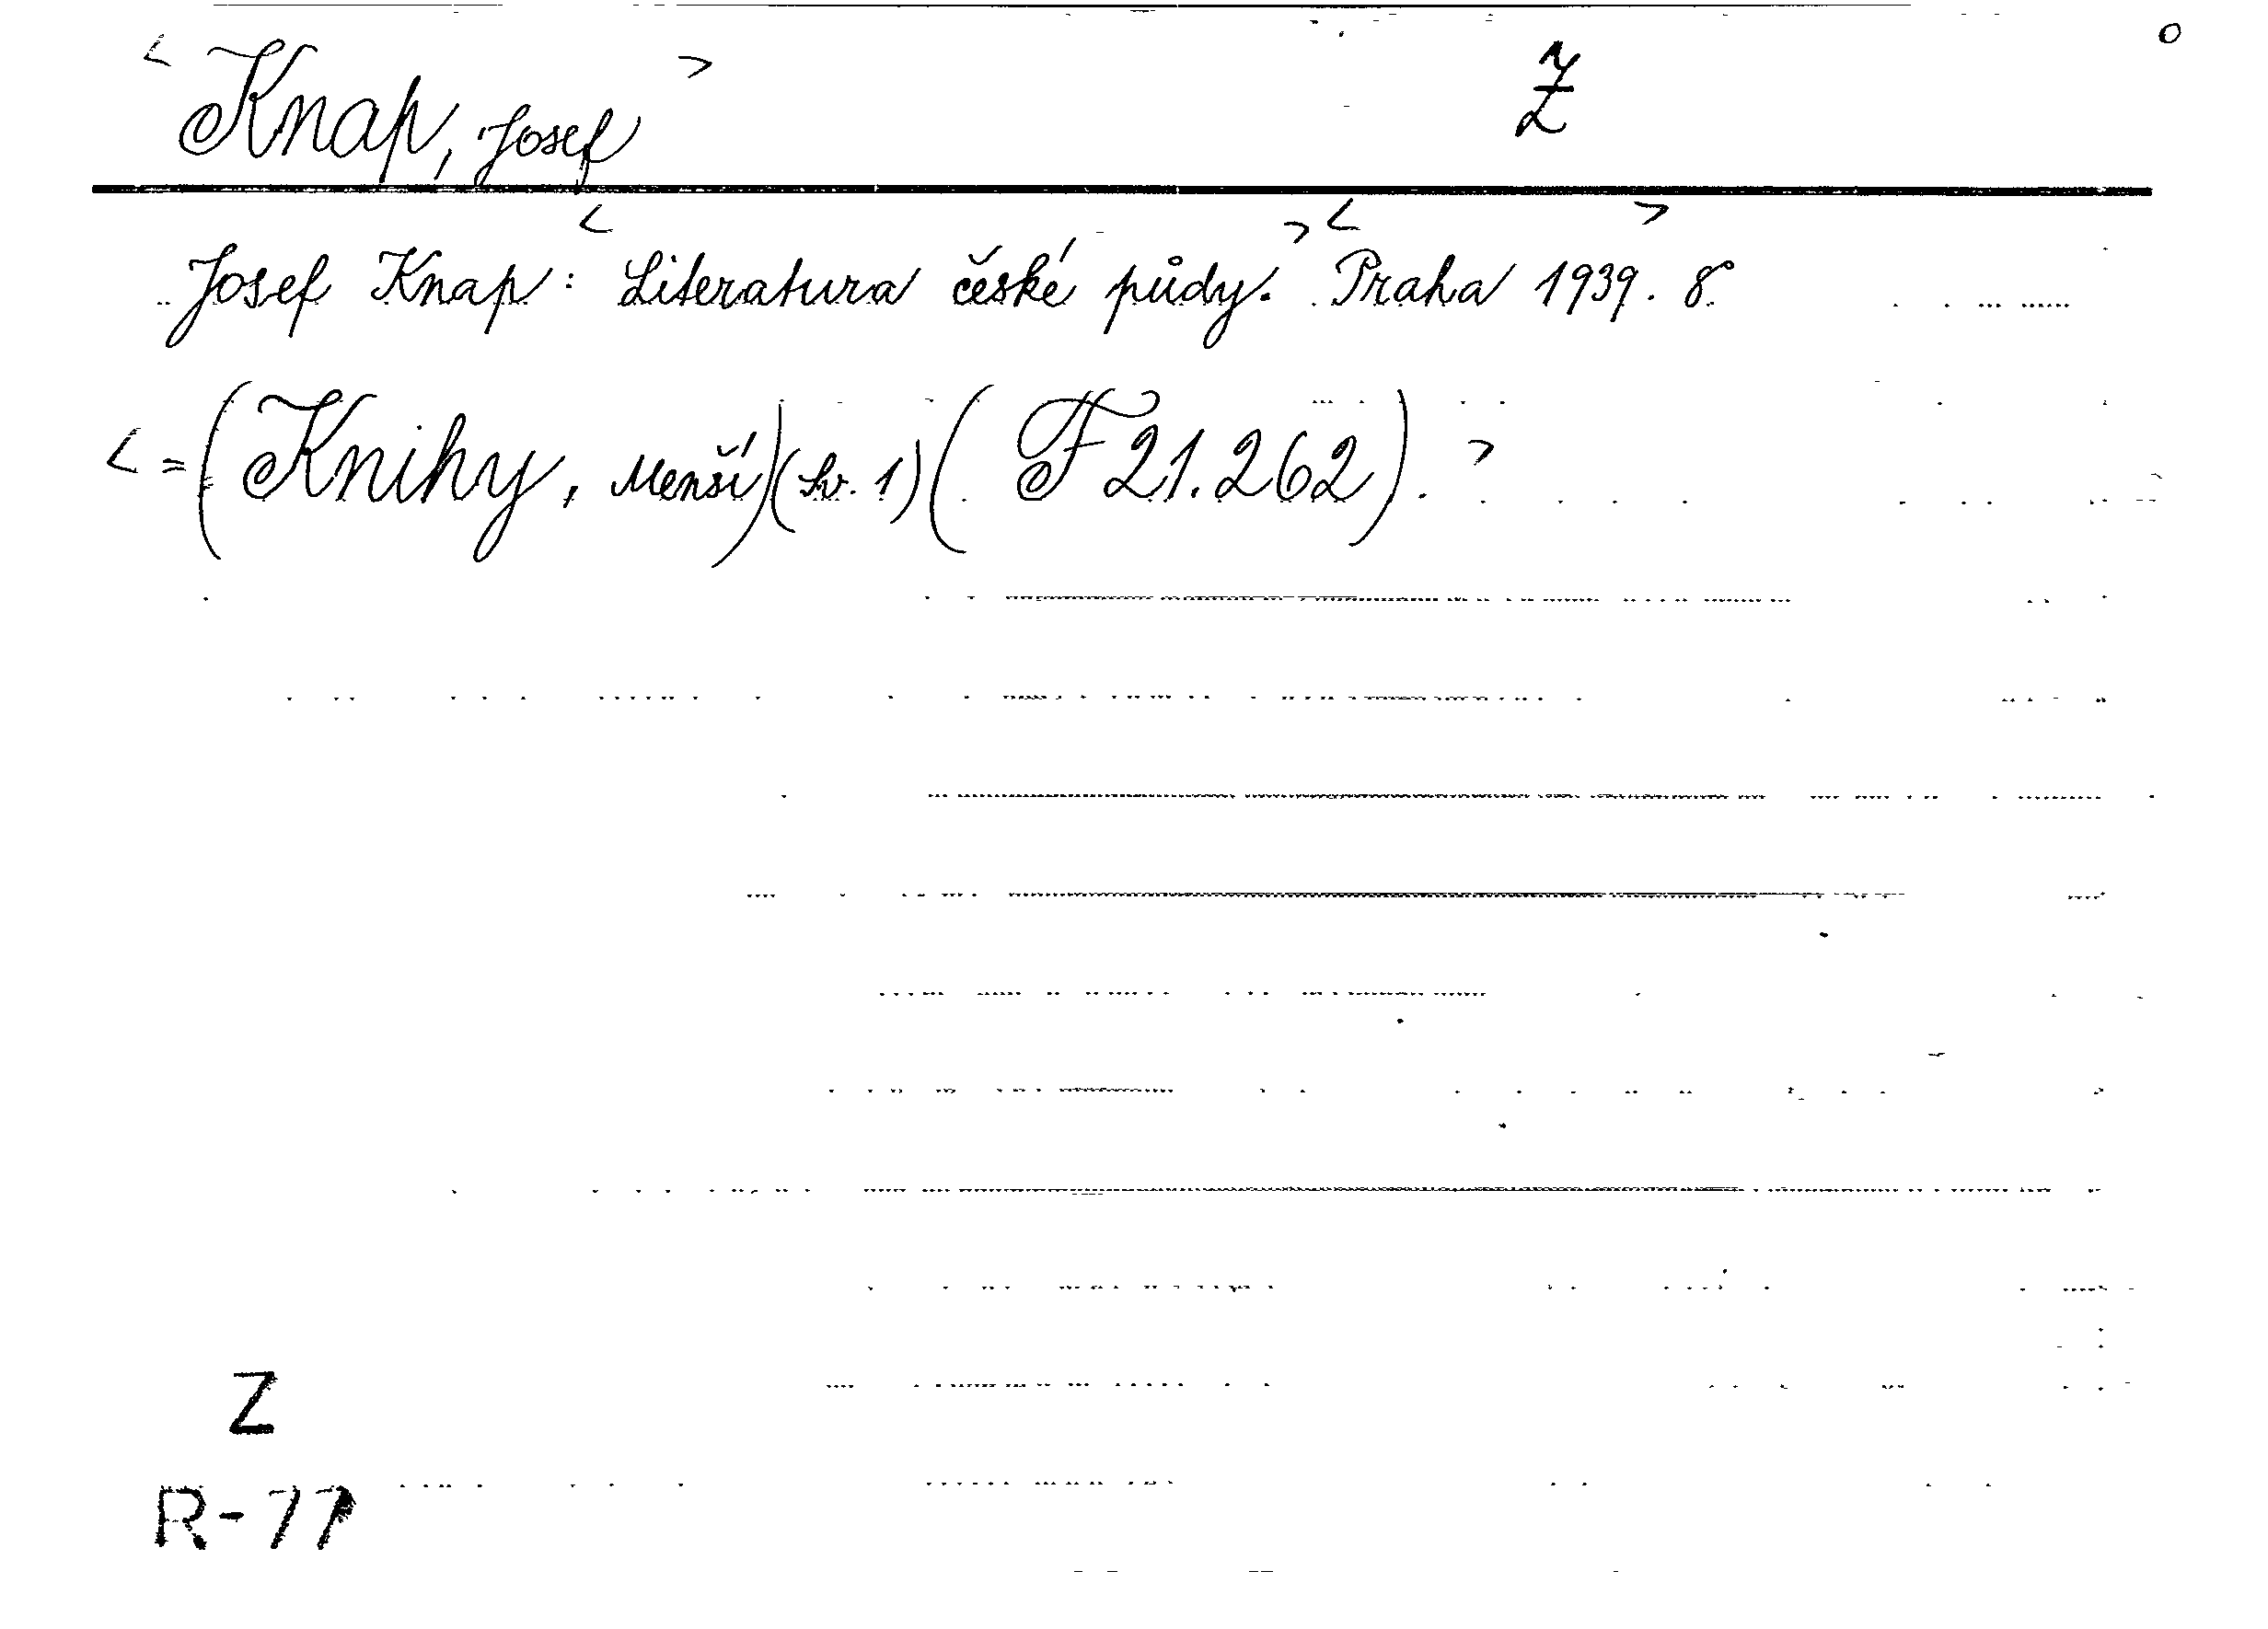 < Knap, Josef > Ž o
Josef Knap: < Literatura české půdy. > < Praha 1939. > 8°
< = (Knihy, Menší) (Sv. 1) (F 21.262). >
Z
R-77